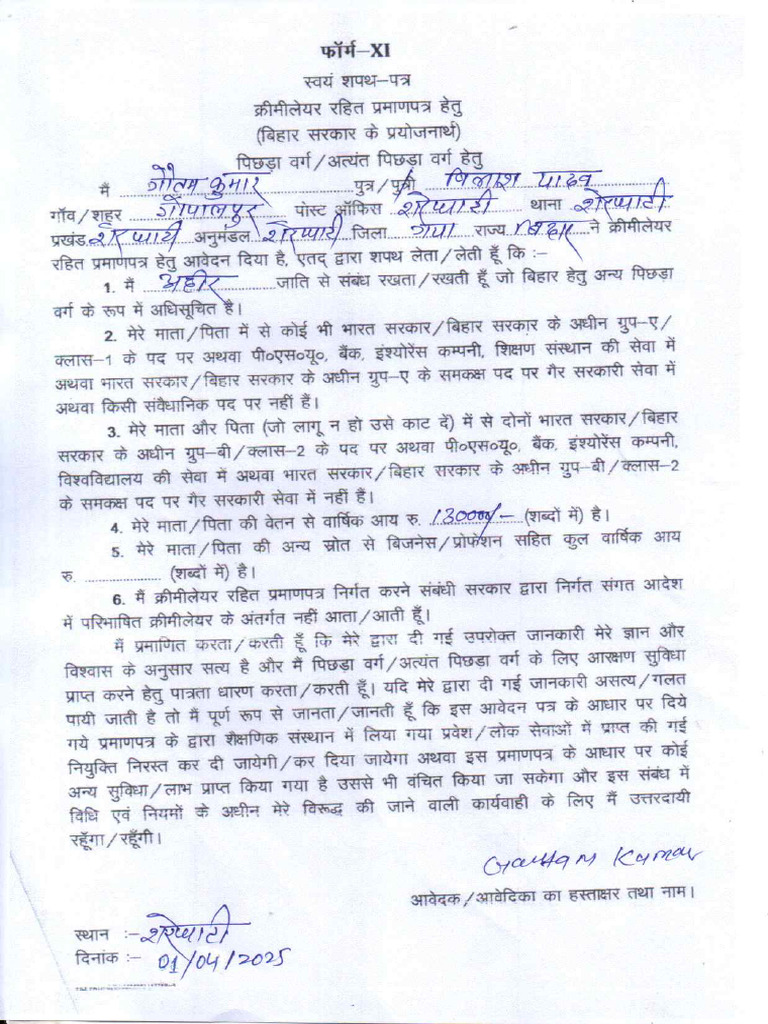 फॉर्म–XI
स्वयं शपथ–पत्र
क्रीमीलेयर रहित प्रमाणपत्र हेतु
(बिहार सरकार के प्रयोजनार्थ)
पिछड़ा वर्ग/अत्यंत पिछड़ा वर्ग हेतु
मैं गौतम कुमार पुत्र/पुत्री विलाश यादव
गॉव/शहर गोपालपुर पोस्ट ऑफिस शेरघाटी थाना शेरघाटी
प्रखंड शेरघाटी अनुमंडल शेरघाटी जिला गया राज्य बिहार ने क्रीमीलेयर
रहित प्रमाणपत्र हेतु आवेदन दिया है, एतद् द्वारा शपथ लेता/लेती हूँ कि :–
1. मैं अहीर जाति से संबंध रखता/रखती हूँ जो बिहार हेतु अन्य पिछड़ा
वर्ग के रूप में अधिसूचित है।
2. मेरे माता/पिता में से कोई भी भारत सरकार/बिहार सरकार के अधीन ग्रुप–ए/
क्लास–1 के पद पर अथवा पी०एस०यू०, बैंक, इंश्योरेंस कम्पनी, शिक्षण संस्थान की सेवा में
अथवा भारत सरकार/बिहार सरकार के अधीन ग्रुप–ए के समकक्ष पद पर गैर सरकारी सेवा में
अथवा किसी संवैधानिक पद पर नहीं हैं।
3. मेरे माता और पिता (जो लागू न हो उसे काट दें) में से दोनों भारत सरकार/बिहार
सरकार के अधीन ग्रुप–बी/क्लास–2 के पद पर अथवा पी०एस०यू०, बैंक, इंश्योरेंस कम्पनी,
विश्वविद्यालय की सेवा में अथवा भारत सरकार/बिहार सरकार के अधीन ग्रुप–बी/क्लास–2
के समकक्ष पद पर गैर सरकारी सेवा में नहीं हैं।
4. मेरे माता/पिता की वेतन से वार्षिक आय रु. 130000/– (शब्दों में) है।
5. मेरे माता/पिता की अन्य स्रोत से बिजनेस/प्रोफेशन सहित कुल वार्षिक आय
रु. .................... (शब्दों में) है।
6. मैं क्रीमीलेयर रहित प्रमाणपत्र निर्गत करने संबंधी सरकार द्वारा निर्गत संगत आदेश
में परिभाषित क्रीमीलेयर के अंतर्गत नहीं आता/आती हूँ।
मैं प्रमाणित करता/करती हूँ कि मेरे द्वारा दी गई उपरोक्त जानकारी मेरे ज्ञान और
विश्वास के अनुसार सत्य है और मैं पिछड़ा वर्ग/अत्यंत पिछडा वर्ग के लिए आरक्षण सुविधा
प्राप्त करने हेतु पात्रता धारण करता/करती हूँ। यदि मेरे द्वारा दी गई जानकारी असत्य/गलत
पायी जाती है तो मैं पूर्ण रूप से जानता/जानती हूँ कि इस आवेदन पत्र के आधार पर दिये
गये प्रमाणपत्र के द्वारा शैक्षणिक संस्थान में लिया गया प्रवेश/लोक सेवाओं में प्राप्त की गई
नियुक्ति निरस्त कर दी जायेगी/कर दिया जायेगा अथवा इस प्रमाणपत्र के आधार पर कोई
अन्य सुविधा/लाभ प्राप्त किया गया है उससे भी वंचित किया जा सकेगा और इस संबंध में
विधि एवं नियमों के अधीन मेरे विरूद्ध की जाने वाली कार्यवाही के लिए मैं उत्तरदायी
रहूँगा/रहूँगी।
Gautam Kumar
आवेदक/आवेदिका का हस्ताक्षर तथा नाम।
स्थान :– शेरघाटी
दिनांक :– 01/04/2025